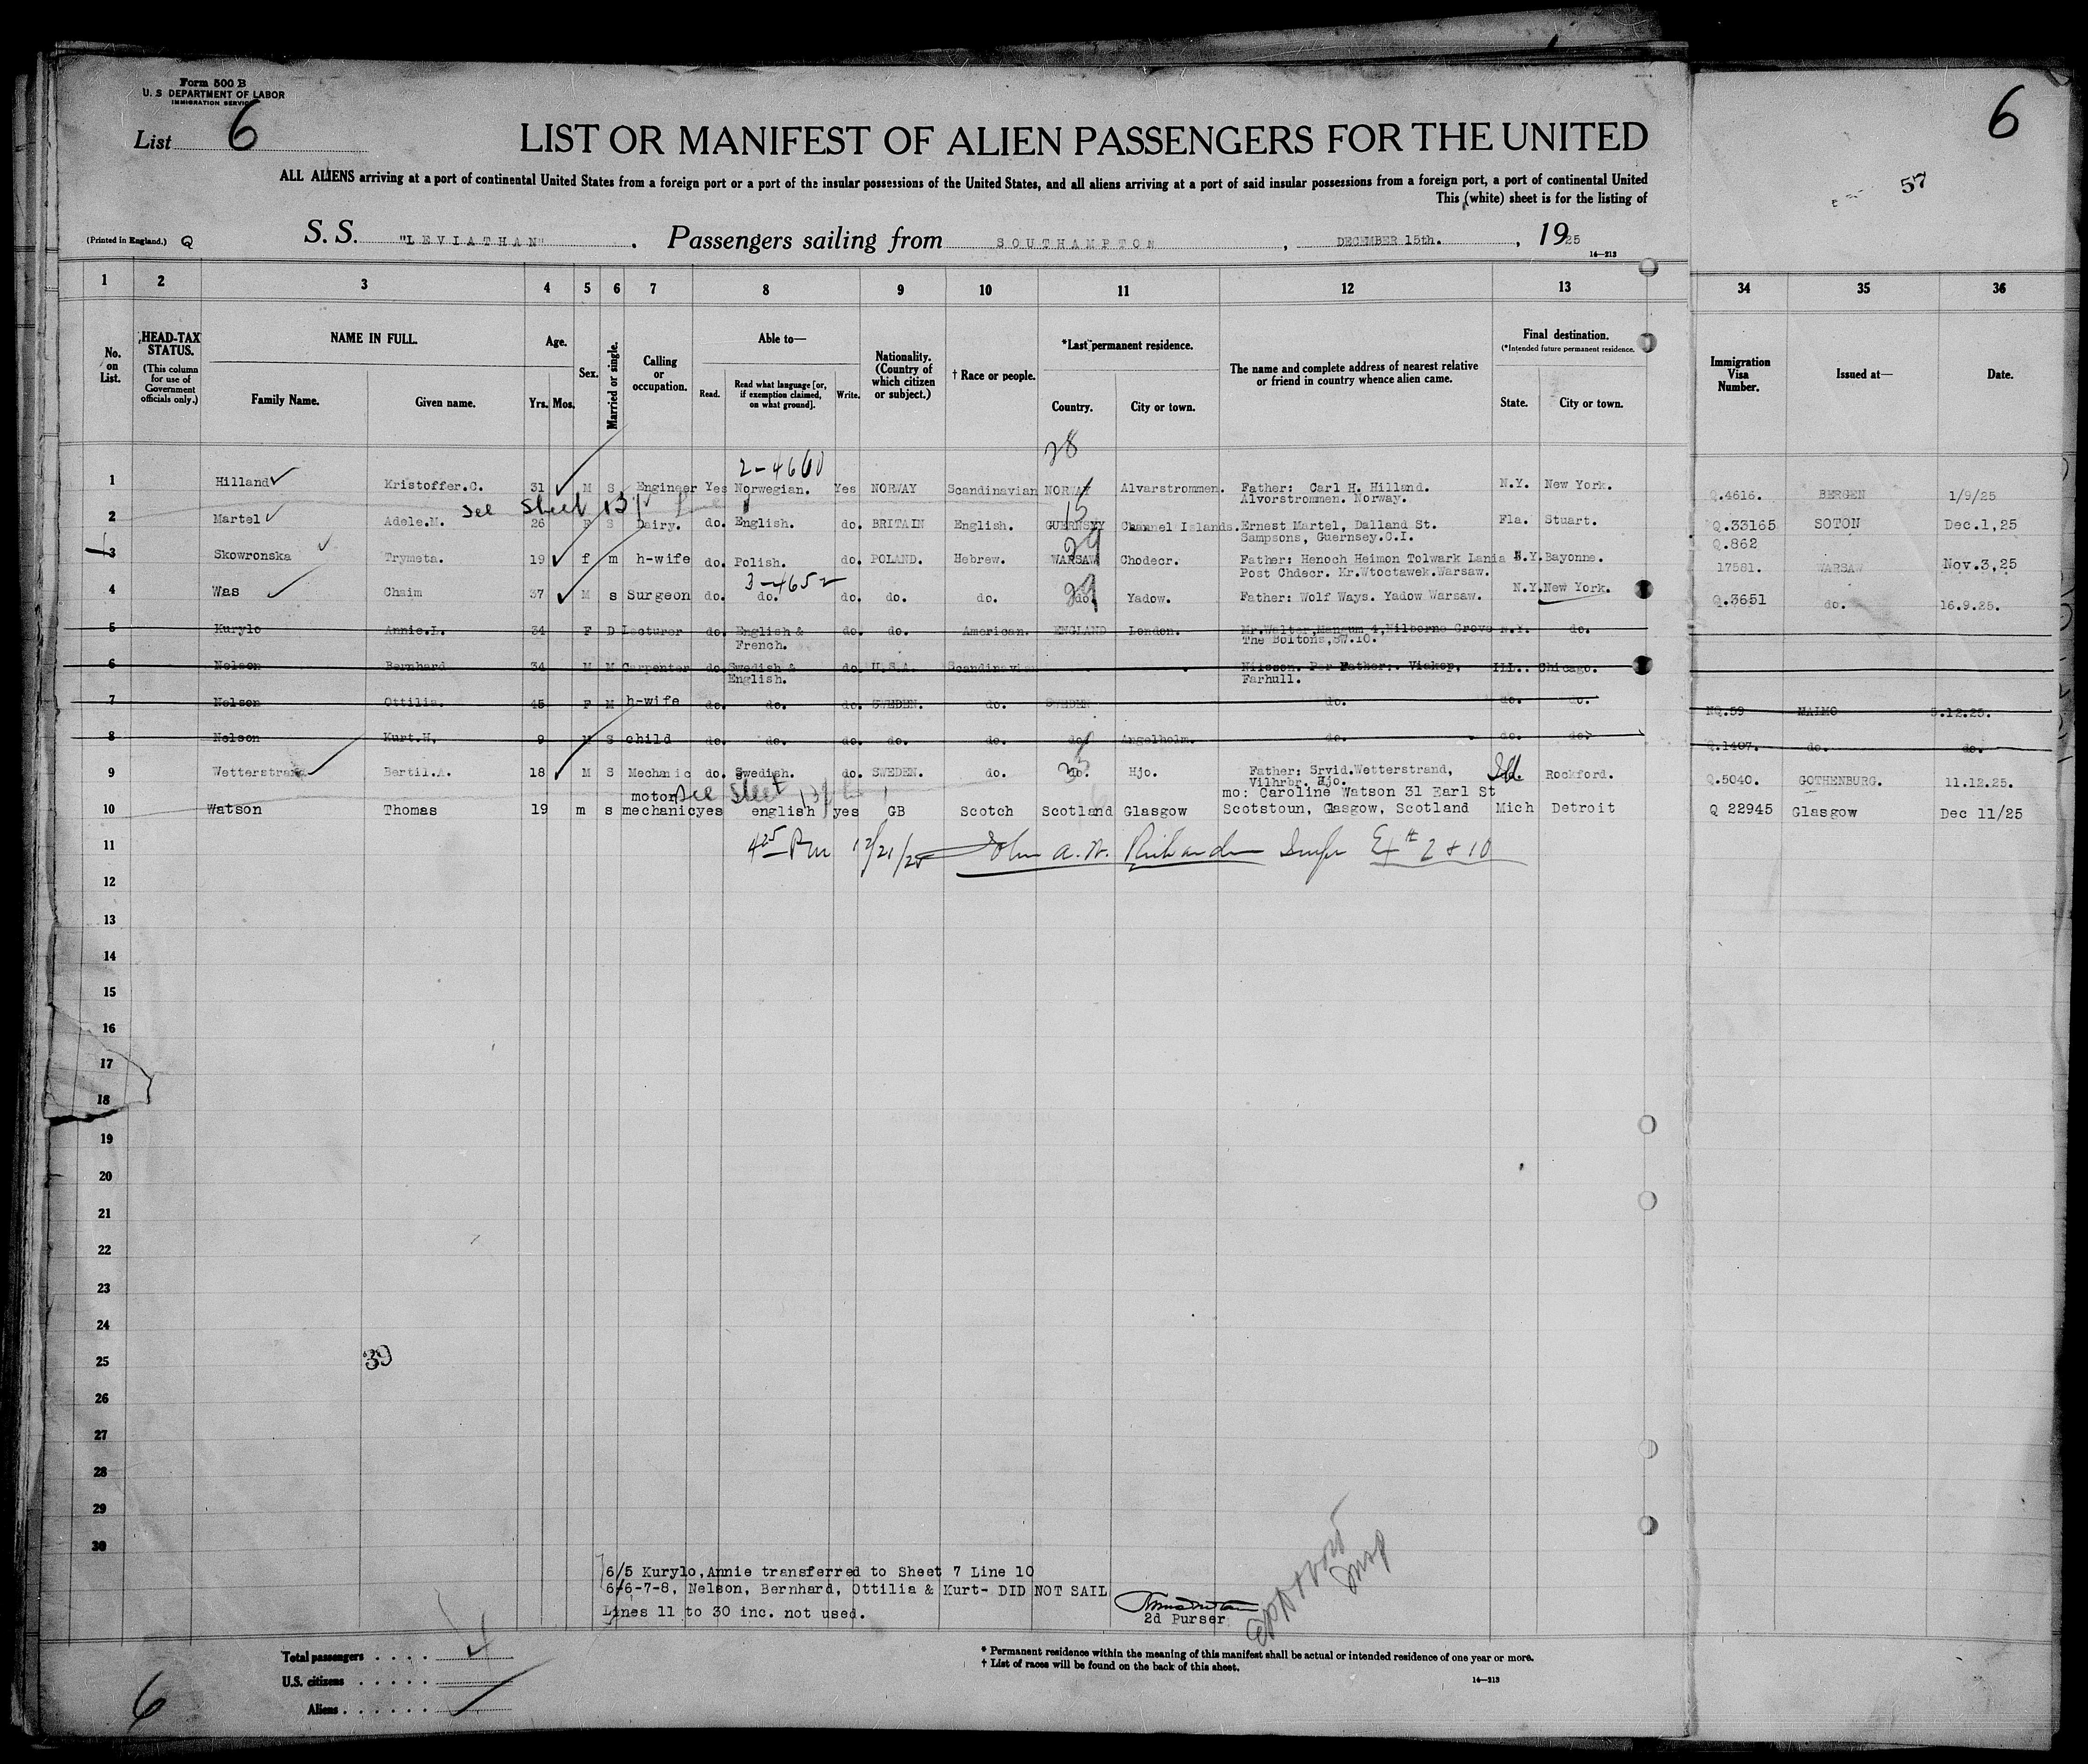 Form 500 B
U. S DEPARTMENT OF LABOR
IMMIGRATION SERVICE
List 6
6
LIST OR MANIFEST OF ALIEN PASSENGERS FOR THE UNITED
57
ALL ALIENS arriving at a port of continental United States from a foreign port or a port of the insular possessions of the United States, and all aliens arriving at a port of said insular possessions from a foreign port, a port of continental United
This (white) sheet is for the listing of
(Printed in England.) Q
S. S. "LEVIATHAN" . Passengers sailing from SOUTHAMPTON , DECEMBER 15th. , 1925
14—213
1 2 3 4 5 6 7 8 9 10 11 12 13 34 35 36
No. on List.
HEAD-TAX STATUS.
(This column for use of Government officials only.)
NAME IN FULL.
Family Name. Given name.
Age.
Yrs. Mos.
Sex.
Married or single.
Calling or occupation.
Able to—
Read. Read what language [or, if exemption claimed, on what ground]. Write.
Nationality. (Country of which citizen or subject.)
† Race or people.
*Last permanent residence.
Country. City or town.
The name and complete address of nearest relative or friend in country whence alien came.
Final destination.
(*Intended future permanent residence.
State. City or town.
Immigration Visa Number.
Issued at—
Date.
28
2-4660
1 Hilland Kristoffer.C. 31 M S Engineer Yes Norwegian. Yes NORWAY Scandinavian NORWAY Alvarstrommen. Father: Carl H. Hilland. N.Y. New York. Q.4616. BERGEN 1/9/25
Alvorstrommen. Norway.
See Sheet 13
15
2 Martel Adele.M. 26 F S Dairy. do. English. do. BRITAIN English. GUERNSEY Channel Islands. Ernest Martel, Dalland St. Fla. Stuart. Q.33165 SOTON Dec.1,25
Sampsons, Guernsey.C.I.
29
3 Skowronska Trymeta. 19 f m h-wife do. Polish. do. POLAND. Hebrew. WARSAW Chodecr. Father: Henoch Heimon Tolwark Lania N.Y. Bayonne. Q.862 17581. WARSAW Nov.3,25
Post Chdecr. Kr.Wtoctawek.Warsaw.
3-4652
29
4 Was Chaim 37 M s Surgeon do. do. do. do. do. do. Yadow. Father: Wolf Ways. Yadow Warsaw. N.Y. New York. Q.3651 do. 16.9.25.
5 Kurylo Annie.L. 34 F D Lecturer do. English & do. do. American. ENGLAND London. Mr.Walter,Mangum 4,Milborne Grove N.Y. do.
French. The Boltons,SW.10.
6 Nelson Bernhard 34 M M Carpenter do. Swedish & do. U.S.A. Scandinavian Nilsson. Per Father:. Viskop, ILL. Chicago.
English. Farhull.
7 Nelson Ottilia. 45 F M h-wife do. do. do. SWEDEN. do. SWEDEN do. do. do. NQ.59 MALMO 5.12.25.
8 Nelson Kurt.H. 9 M S child do. do. do. do. do. do. Angelholm. do. do. do. Q.1407. do. do.
35
9 Wetterstrand Bertil.A. 18 M S Mechanic do. Swedish. do. SWEDEN. do. do. Hjo. Father: Srvid.Wetterstrand, Ill. Rockford. Q.5040. GOTHENBURG. 11.12.25.
Vilhrbr. Hjo.
See Sheet 13
motor mo: Caroline Watson 31 Earl St
10 Watson Thomas 19 m s mechanic yes english yes GB Scotch Scotland Glasgow Scotstoun, Glasgow, Scotland Mich Detroit Q 22945 Glasgow Dec 11/25
11 4 25 Pm 12/21/25 John A. W. Richardson Insp Ex # 2 & 10
12
13
14
15
16
17
18
19
20
21
22
23
24
25 39
26
27
28
29
30
6/5 Kurylo,Annie transferred to Sheet 7 Line 10
6/6-7-8, Nelson, Bernhard, Ottilia & Kurt- DID NOT SAIL
Lines 11 to 30 inc. not used.
2d Purser
Total passengers
U.S. citizens
Aliens
6
* Permanent residence within the meaning of this manifest shall be actual or intended residence of one year or more.
† List of races will be found on the back of this sheet.
14—213